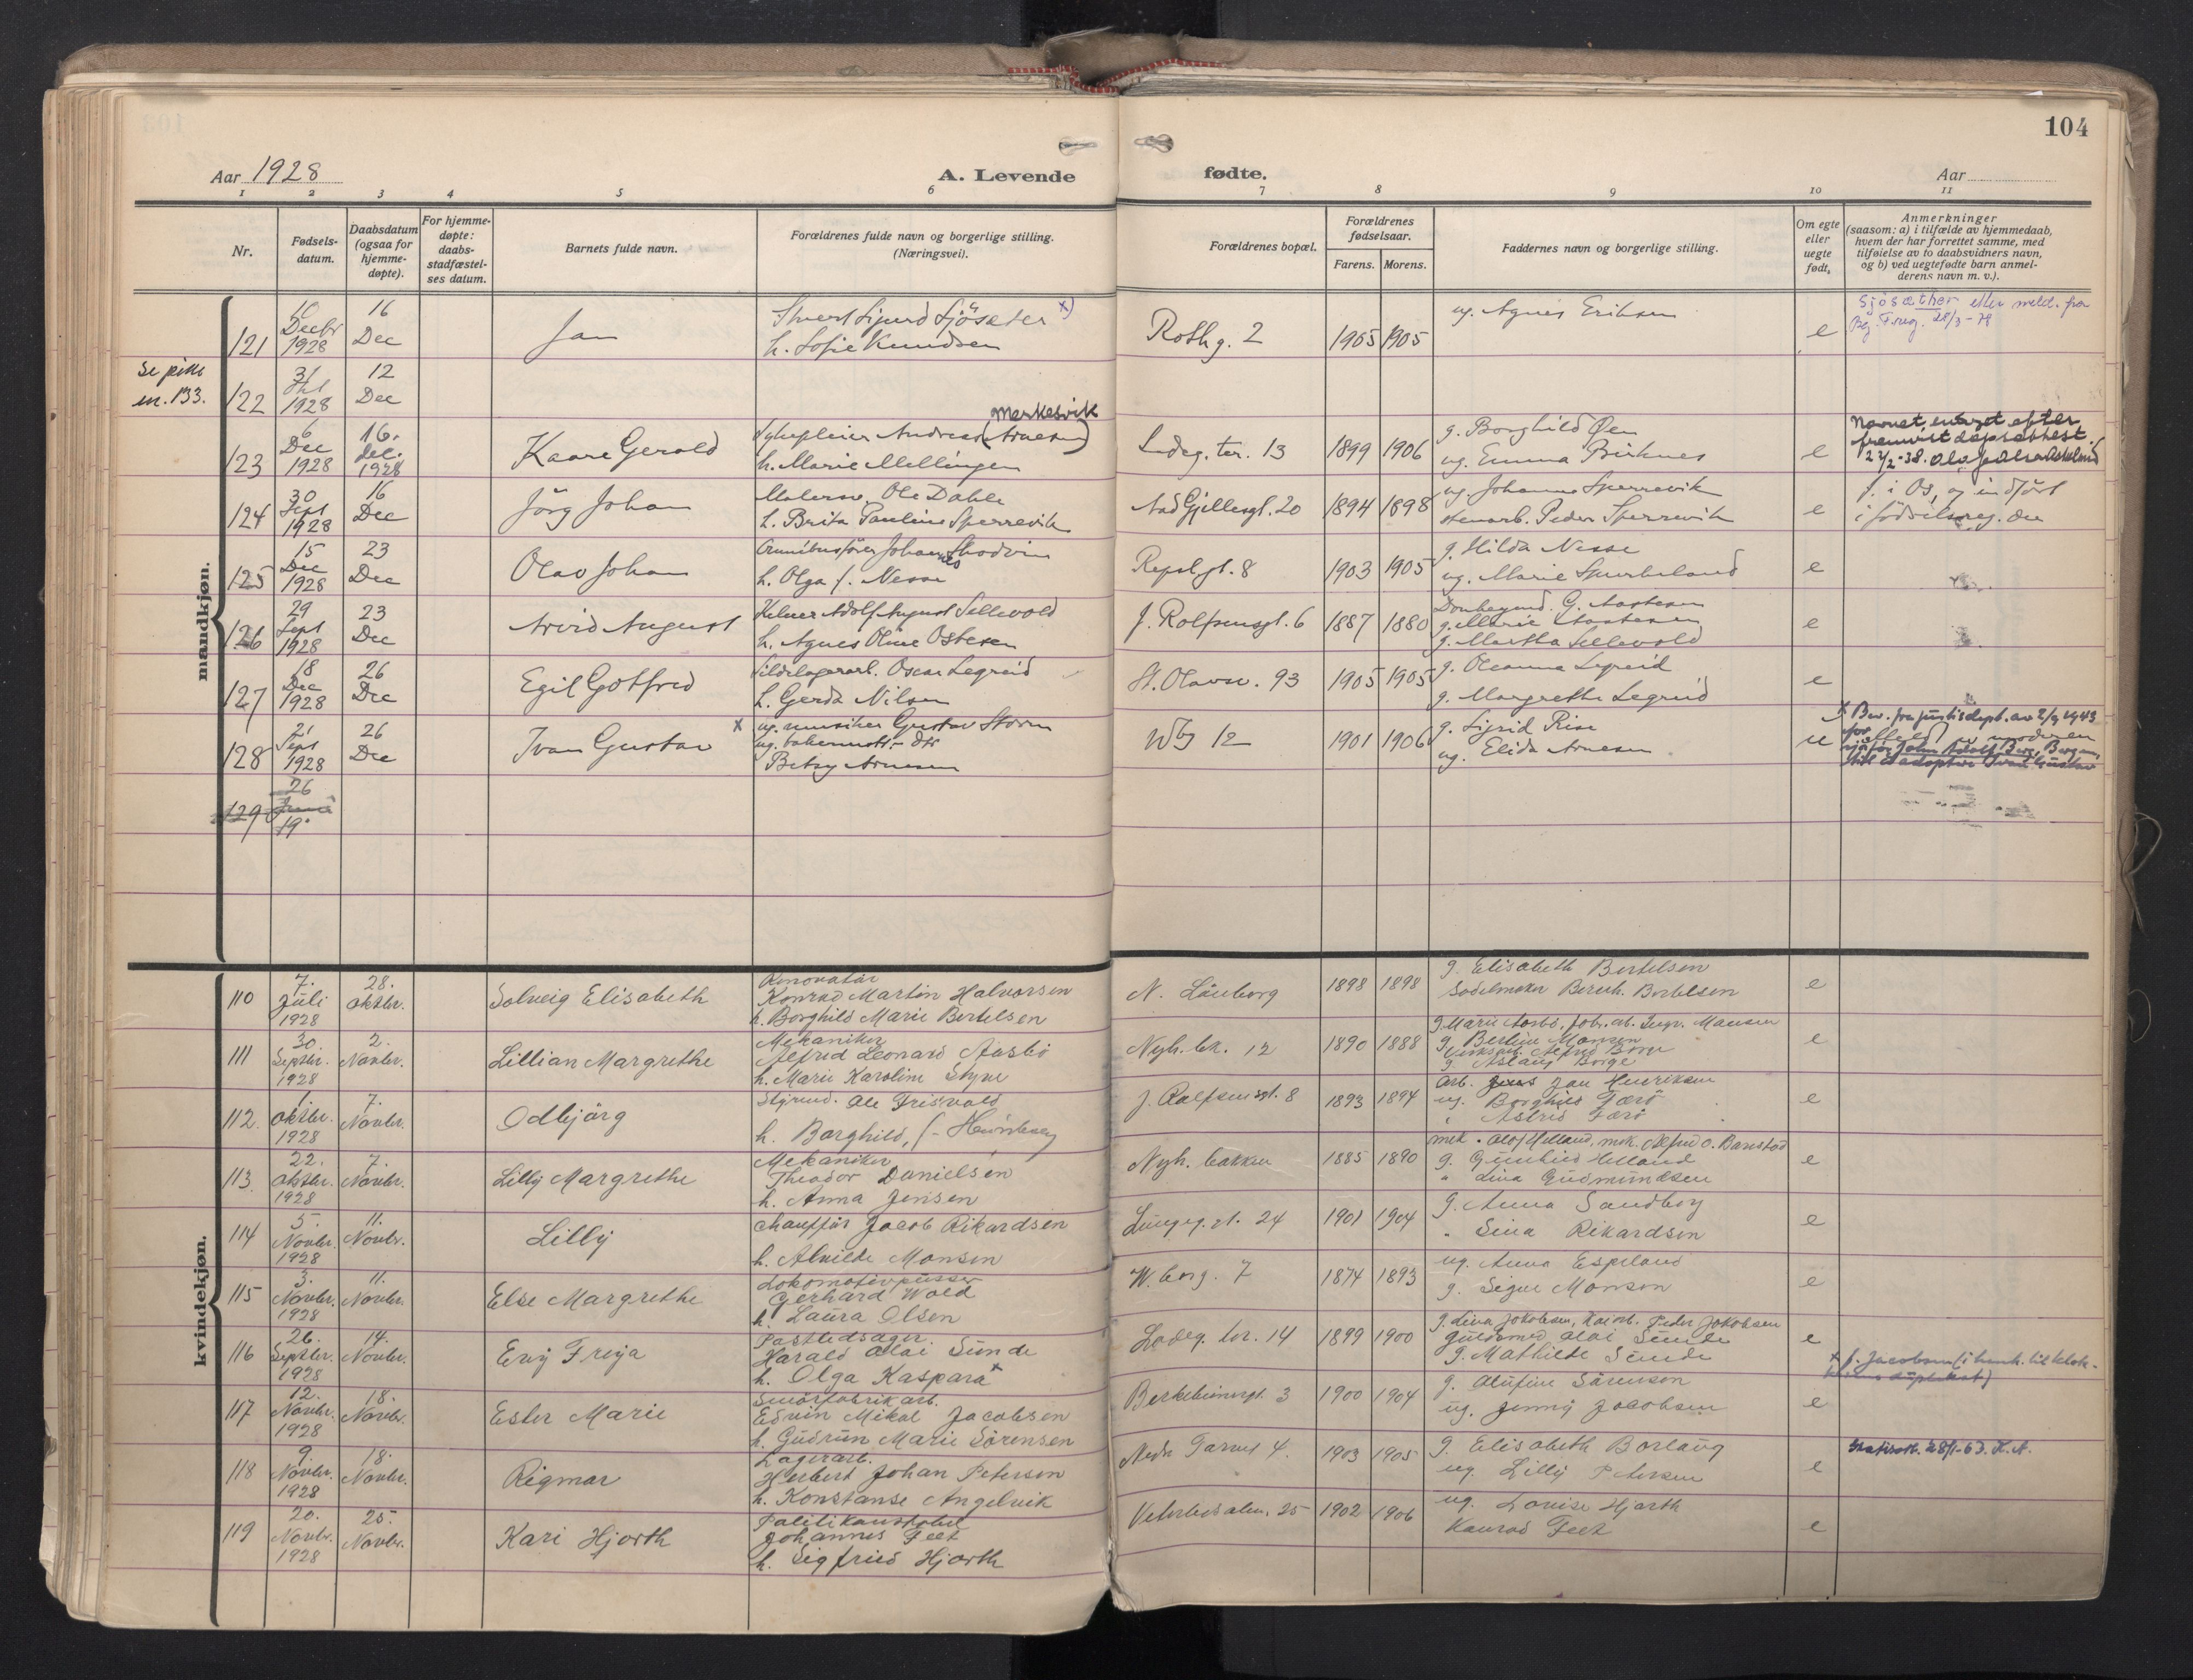 104
Aar 1928
A. Levende
fødte.
Aar
1 2 3 4 5 6 7 8 9 10 11
Nr.
Fødsels-
datum.
Daabsdatum
(ogsaa for
hjemme-
døpte).
For hjemme-
døpte:
daabs-
stadfæstel-
ses datum.
Barnets fulde navn.
Forældrenes fulde navn og borgerlige stilling.
(Næringsvei).
Forældrenes bopæl.
Forældrenes
fødselsaar.
Farens. Morens.
Faddernes navn og borgerlige stilling.
Om egte
eller
uegte
født.
Anmerkninger
(saasom: a) i tilfælde av hjemmedaab,
hvem der har forrettet samme, med
tilføielse av to daabsvidners navn,
og b) ved uegtefødte barn anmel-
derens navn m. v.).
mandkjøn.
121
10
Decbr
1928
16
Dec
Jan
Sjurd Sjösæter x)
h. Sofie Knudsen
Rothg. 2
1905 1905
ug. Agnes Eriksen
e
Sjösæther etter meld. fra
F.reg. 28/3-78
Se pike
nr. 133.
122
31
1928
12
Dec
123
6
Dec
1928
16.
dec.
1928
Kaare Gerold
Merkesvik
Sykepleier Andreas (Arnesen)
h. Marie Mellingen
Ladeg. ter. 13
1899 1906
g. Borghild Øen
ug. Emma Birknes
e
Navnet endret efter
fremvist dåpsattest.
124
30
Sept
1928
16
Dec
Jörg Johan
Malersv. Ole Dahle
h. Brita Pauline Sperrevik
Aad Gjellesgt. 20
1894 1898
ug. Johanne Sperrevik
stenarb. Peder Sperrevik
e
f. i Os, og indfört
i födselsreg. der
125
15
Dec
1928
23
Dec
Olav Johan
Omnibusförer Johannes Skodvin
h. Olga f. Nesse
Repslgt. 8
1903 1905
g. Hilda Nesse
ug. Marie
e
126
29
Sept
1928
23
Dec
Arvid August
Kelner Adolf August Sellevold
h. Agnes Oline Ostesen
J. Rolfsensgt. 6
1887 1880
g. Marie
g. Martha Sellevold
e
127
18
Dec
1928
26
Dec
Egil Gotfred
Sildelagerarb. Oscar Legreid
h. Gerda Nilsen
St. Olavsv. 93
1905 1905
g. Oleanna Legreid
g. Margrethe Legreid
e
128
21
Sept
1928
26
Dec
Ivan Gustav
x ug. musiker Gustav Storm
ug.
Betsy Arnesen
Wbg 12
1901 1906
g. Sigrid Rise
ug. Elida Arnesen
u
x Bev. fra justisdept. av 2/9 1943
for
sjåfør John Adolf Berg, Bergen,
til å adoptere Ivan Gustav
129
26
19
kvindekjøn.
110
7.
Juli
1928
28.
oktbr.
Solveig Elisabeth
Renovatör
Konrad Martin Halvorsen
h. Borghild Marie Bertelsen
N. Lauborg
1898 1898
g. Elisabeth Bertelsen
Sadelmaker Bernh. Bertelsen
e
111
30.
Septbr.
1928
2.
Novbr.
Lillian Margrethe
Mekaniker
Alfred Leonard Aasbö
h. Marie Karoline Styve
Nyh. bk. 12
1890 1888
g. Marie Aasbö, fabr. arb. Ingv. Monsen
g. Bertine Monsen
Verkstarb. Alfred Borge
g. Aslaug Borge
e
112
1.
Oktbr.
1928
7.
Novbr.
Odbjörg
Styrmd. Ole Frisvold
h. Borghild, f. Henriksen
J. Rolfsensgt. 8
1893 1894
Arb. Jan Henriksen
ug. Borghild Færö
" Astrid Færö
e
113.
22.
Oktbr.
1928
7.
Novbr.
Lilly Margrethe
Mekaniker
Theodor Danielsen
h. Anna Jensen
Nyh. bakken
1885 1890
mek. Olaf Helland, mek. Alfred O. Barstad
g. Gunhild Helland
" Lina Gudmundsen
e
114
5.
Novbr.
1928
11.
Novbr.
Lilly
Chauffør Jacob Rikardsen
h. Alvilde Monsen
Lungeg. gt. 24
1901 1904
g. Anna Sandborg
" Sina Rikardsen
e
115
3.
Novbr.
1928
11.
Novbr.
Else Margrethe
Lokomotivpusser
Gerhard Wold
h. Laura Olsen
W. borg. 7
1874 1893
ug. Anna Espeland
g. Signe Monsen
e
116
26.
Septbr.
1928
14.
Novbr.
Eny Freya
Postledsager.
Harald Olai Sunde
h. Olga Kaspara x
Ladeg. ter. 14
1899 1900
g. Lina Jakobsen, Kaiarb. Peder Jakobsen
Guldsmed Olai Sunde
g. Mathilde Sunde
e
x f. Jacobsen (i henh. til klok-
kerens duplikat)
117
12.
Novbr.
1928
18.
Novbr.
Ester Marie
Smörfabrik arb.
Edvin Mikal Jacobsen
h. Gudrun Marie Sörensen
Berkebeinergt. 3
1900 1904
g. Olufine Sörensen
ug. Jenny Jacobsen
e
118
9.
Novbr.
1928
18.
Novbr.
Rigmor
Lagerarb.
Herbert Johan Petersen
h. Konstanse Angelvik
Nedr Garnes 4.
1903 1905
g. Elisabeth Borlaug
ug. Lilly Petersen
e
28/1-63. K.A.
119
20.
Novbr.
1928
25.
Novbr.
Kari Hjorth
Politikonstabel
Johannes Feet
h. Sigfried Hjorth
25
1902 1906
ug. Lovise Hjorth
Konrad Feet
e